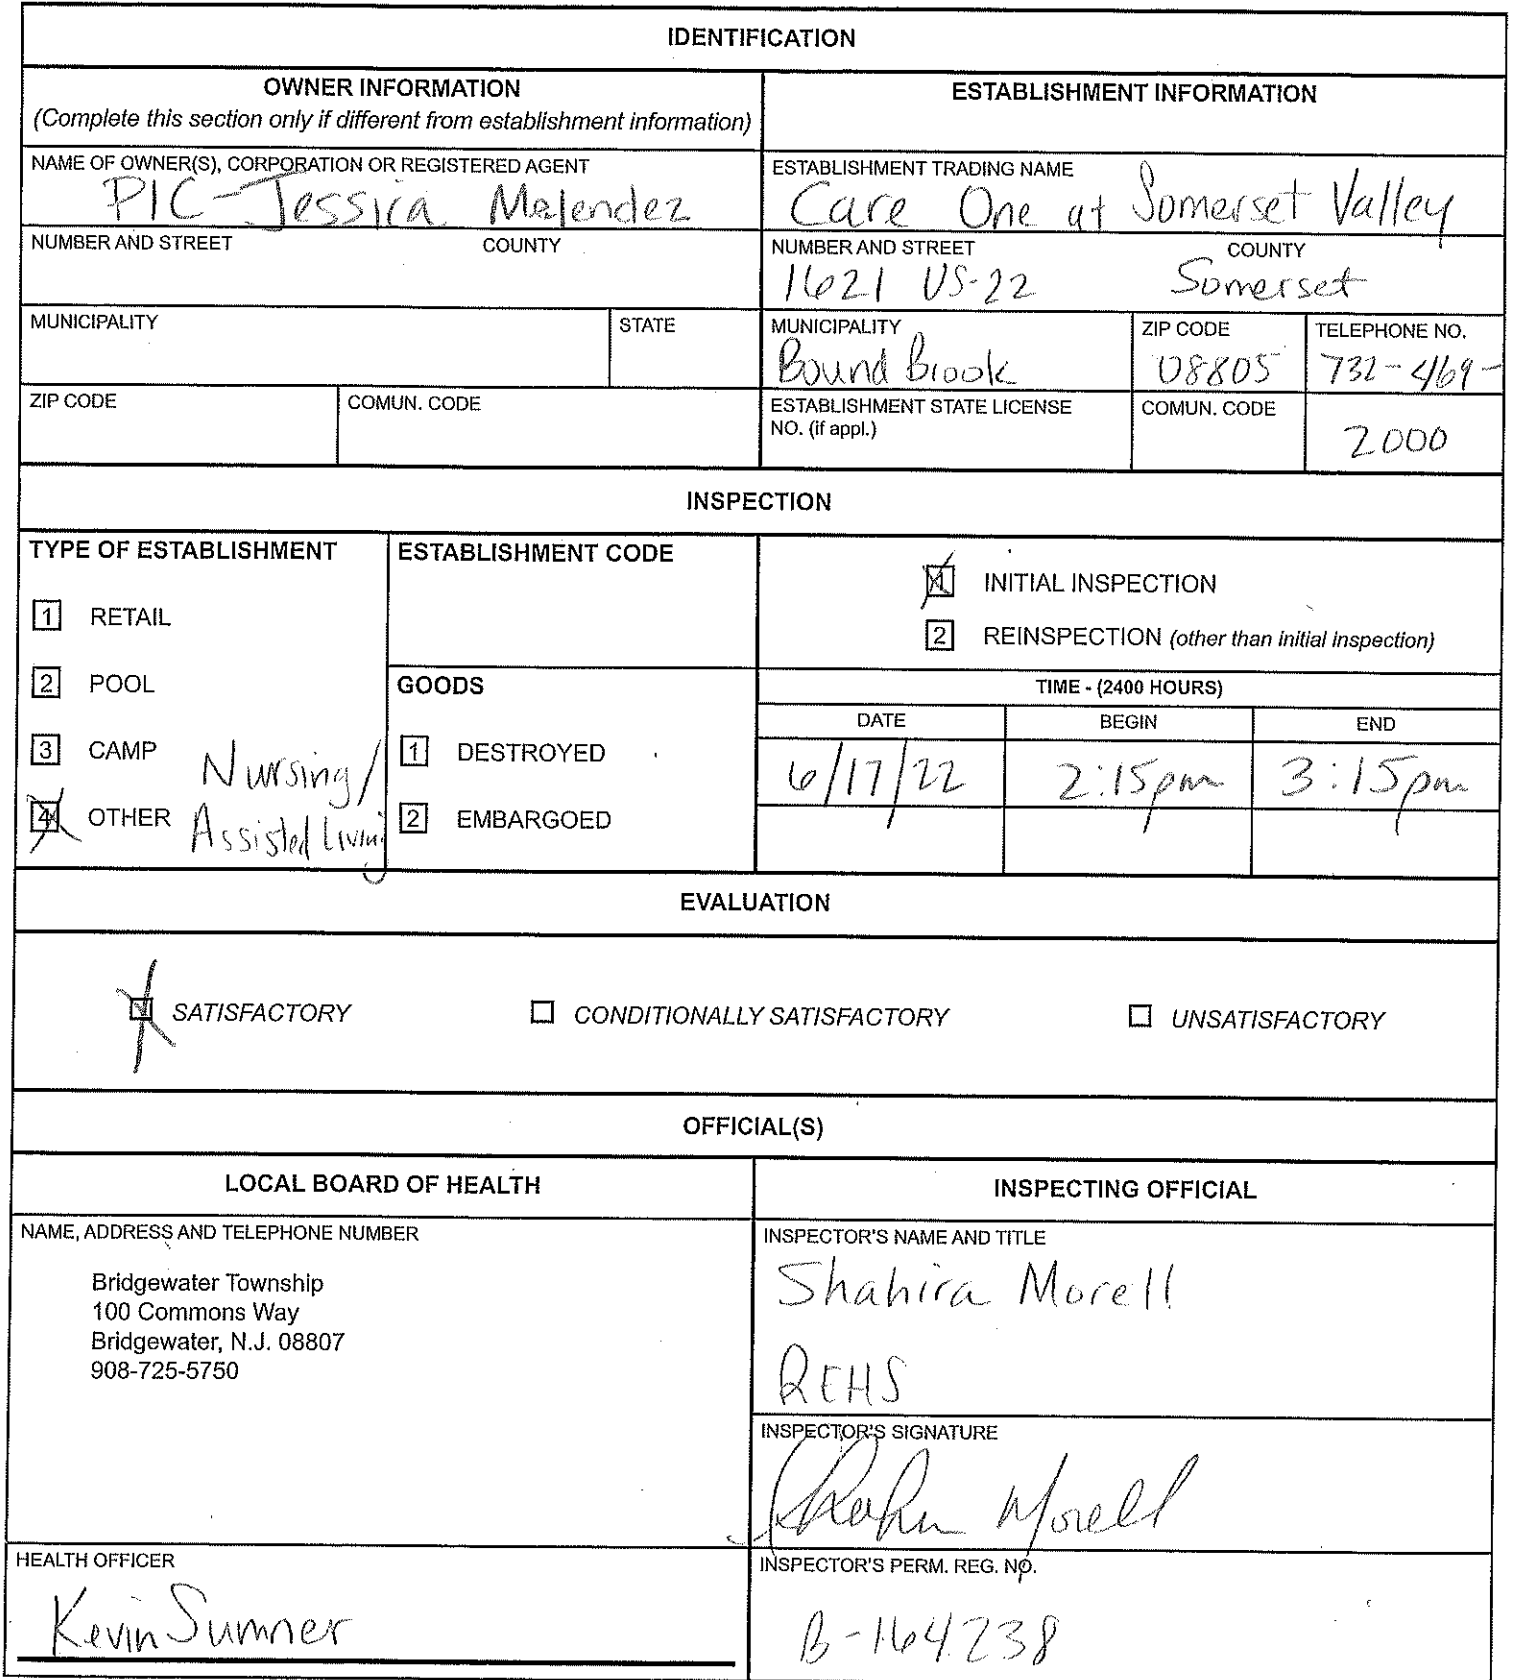 IDENTIFICATION
OWNER INFORMATION
(Complete this section only if different from establishment information)
ESTABLISHMENT INFORMATION
NAME OF OWNER(S), CORPORATION OR REGISTERED AGENT
PIC-Jessica Melendez
ESTABLISHMENT TRADING NAME
Care One at Somerset Valley
NUMBER AND STREET COUNTY
NUMBER AND STREET COUNTY
1621 US-22 Somerset
MUNICIPALITY STATE
MUNICIPALITY ZIP CODE TELEPHONE NO.
Bound Brook 08805 732-469-
ZIP CODE COMUN. CODE
ESTABLISHMENT STATE LICENSE NO. (if appl.) COMUN. CODE
2000
INSPECTION
TYPE OF ESTABLISHMENT
1 RETAIL
2 POOL
3 CAMP
4 OTHER
Nursing/
Assisted Living
ESTABLISHMENT CODE
GOODS
1 DESTROYED
2 EMBARGOED
1 INITIAL INSPECTION
2 REINSPECTION (other than initial inspection)
TIME - (2400 HOURS)
DATE BEGIN END
6/17/22 2:15pm 3:15pm
EVALUATION
SATISFACTORY CONDITIONALLY SATISFACTORY UNSATISFACTORY
OFFICIAL(S)
LOCAL BOARD OF HEALTH
NAME, ADDRESS AND TELEPHONE NUMBER
Bridgewater Township
100 Commons Way
Bridgewater, N.J. 08807
908-725-5750
HEALTH OFFICER
Kevin Sumner
INSPECTING OFFICIAL
INSPECTOR'S NAME AND TITLE
Shahira Morell
REHS
INSPECTOR'S SIGNATURE
Morell
INSPECTOR'S PERM. REG. NO.
B-164238